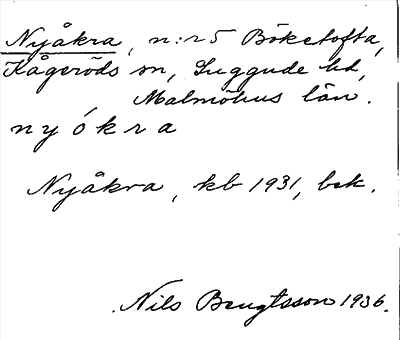 Nyåkra, n:r 5 Böketofta,
Kågeröds sn, Luggude hd,
Malmöhus län.
nyókra
Nyåkra, kb 1931, bek.
Nils Bengtsson 1936.